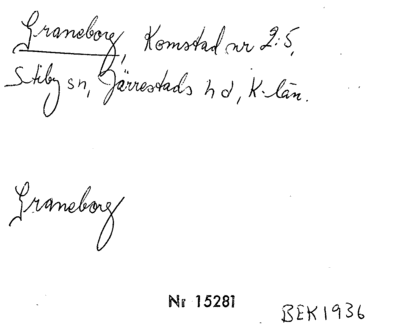 Graneborg, Komstad nr 2:5,
Stiby sn, Järrestads hd, K-län.
Graneborg
Nr 15281
BEK1936